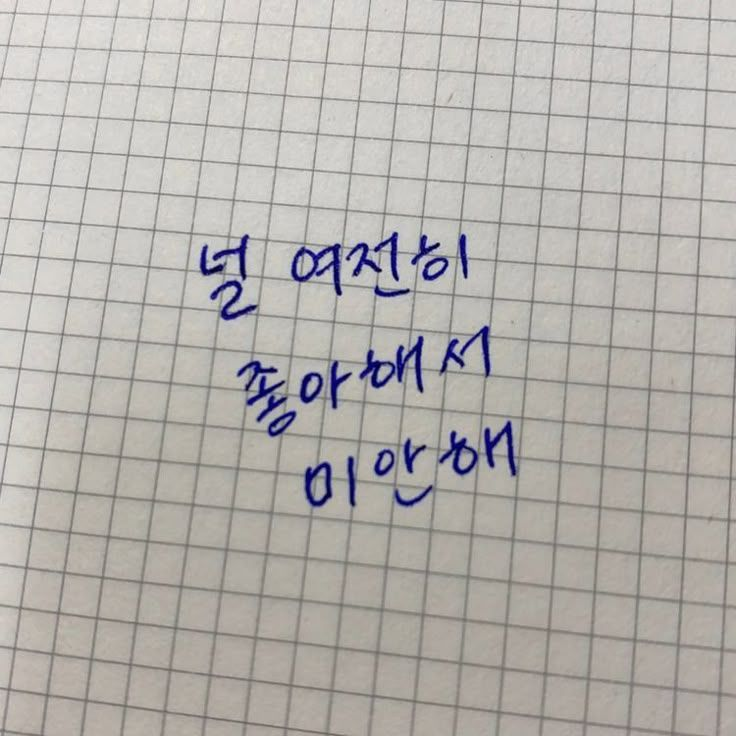 널 여전히
좋아해서
미안해